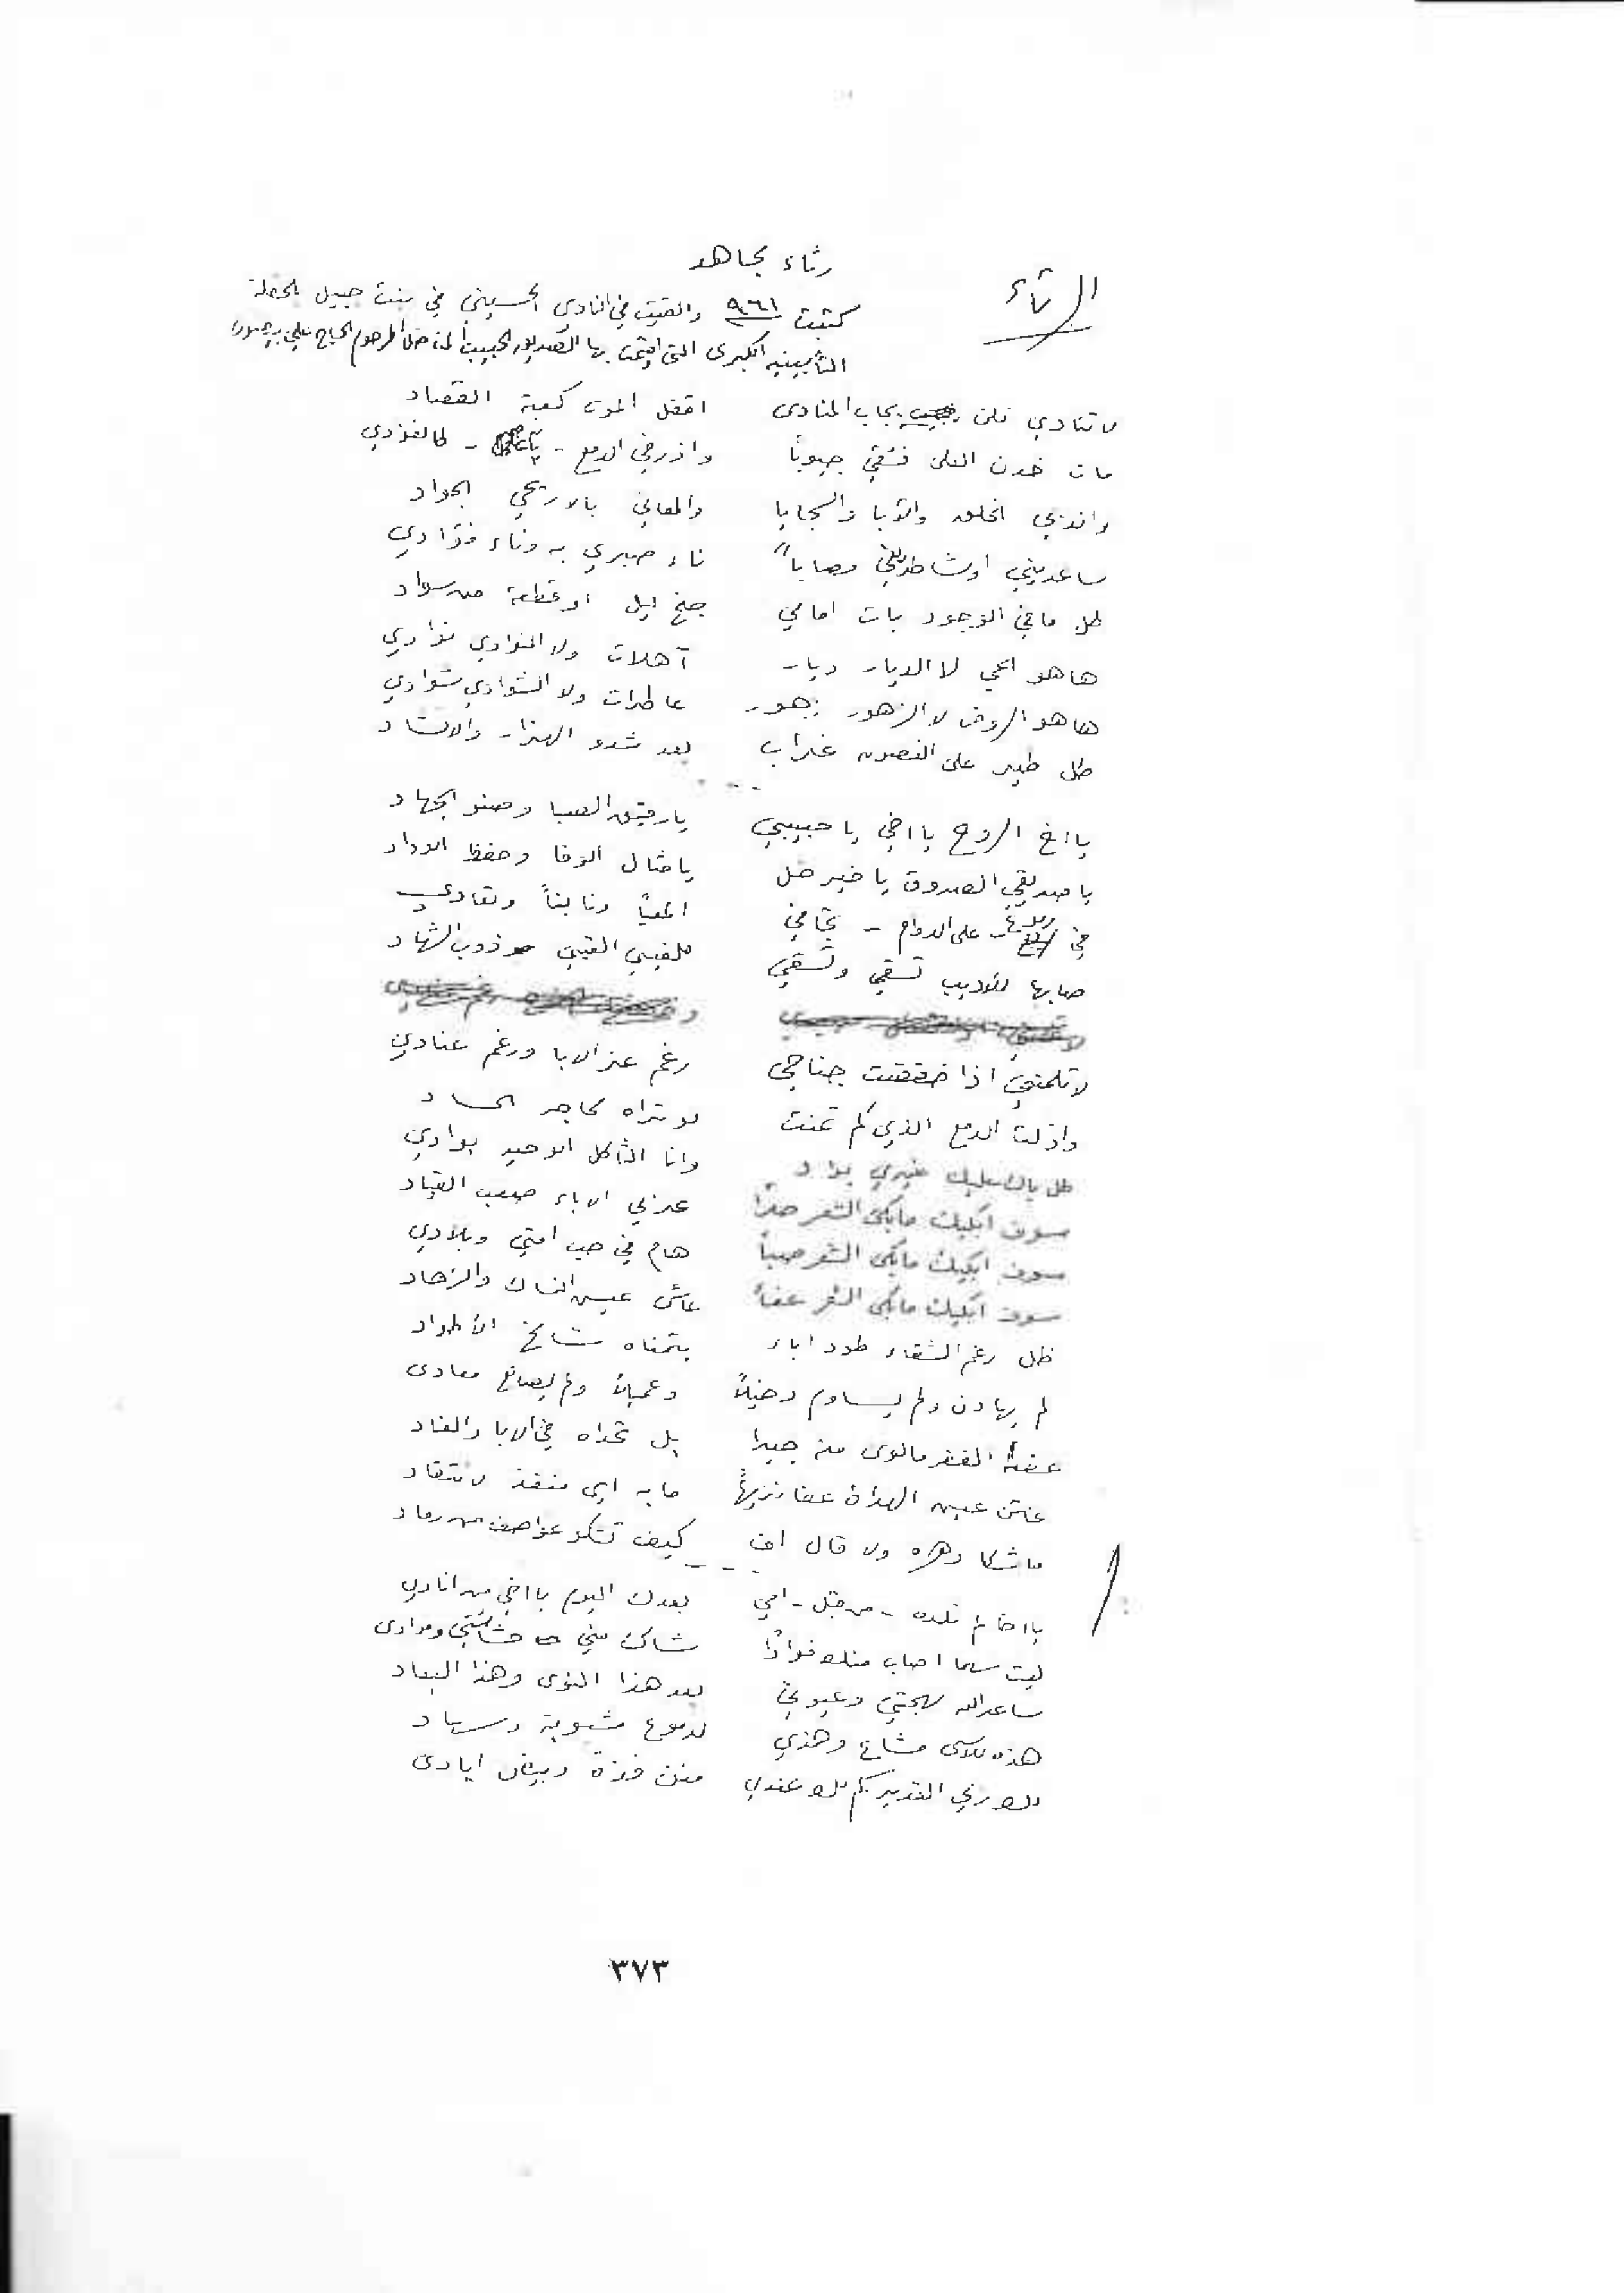 الرثاء
رثاء مجاهد
كتبت ٩٦١ والقيت في النادي الحسيني في بنت جبيل بالحفلة
التأبينيه الكبرى التي اقيمت بها للصديق الحبيب المناضل المرحوم الحاج علي بيضون
لا تنادي فلن يجاب المنادى اقفل الموت كعبة القصاد
مات خدن العلى فشقي جيوبا واذرفي الدمع - - كالغوادي
واندبي الخلق والابا والسجايا والمعاني بالاريحي الجواد
ساعديني اوشاطريني مصابا ناء صبري به وناء فؤادي
كل ما في الوجود بات امامي جنح ليل او قطعة من سواد
ها هو الحي لا الديار ديار آهلات ولا النوادي نوادي
ها هو الروض لا الزهور زهور عاطرات ولا الشوادي شوادي
كل طير على الغصون غراب بعد شدو الهزار والانشاد
يا اخ الروح يا اخي يا حبيبي يا رفيق الصبا وصنو الجهاد
يا صديقي الصدوق يا خير خل يا مثال الوفا وحفظ الوداد
في - على الدوام - تجافي المعيا ونابغا وتعادي
صابها للاديب تسقي وتسقي للغبي الغبي ذوب الشهاد
لا تلمني اذا خفضت جناحي رغم عز الابا ورغم عنادي
واذلت الدمع الذي كم تمنت لو تراه محاجر الحساد
كل باك عليك غيري بواد وانا الثاكل الوحيد بوادي
سوف ابكيك مابكى الشعر حرا عربي الاباء صعب القياد
سوف ابكيك مابكى الشعر صبا هام في حب امتي وبلادي
سوف ابكيك مابكى الشعر عفا عاش عيش النساك والزهاد
ظل رغم الشقاء طود اباء يتمناه شامخ الاطواد
لم يهادن ولم يساوم دخيلا وعميلا ولم يصانع معادى
عضه الفقر مالوى منه جيدا بل تحداه في الابا والعناد
عشت عيش الهداة عفا نزيها ما به اي منفذ لانتقاد
ما شكا دهره ولا قال اف كيف تشكو عواصف من رماد
يا اخا لم تلده - من قبل - امي بعدك اليوم يا اخي من انادي
ليت سهما اصاب منك فوادا شاك مني حشاشتي وفوادى
ساعد الله مهجتي وعيوني بعد هذا النوى وهذا البعاد
هذه للاسى مشاع وهذي لدموع مشبوبة وسهاد
لك وربي القدير كم لك عندي منن فذة وبيض ايادى
٣٧٣